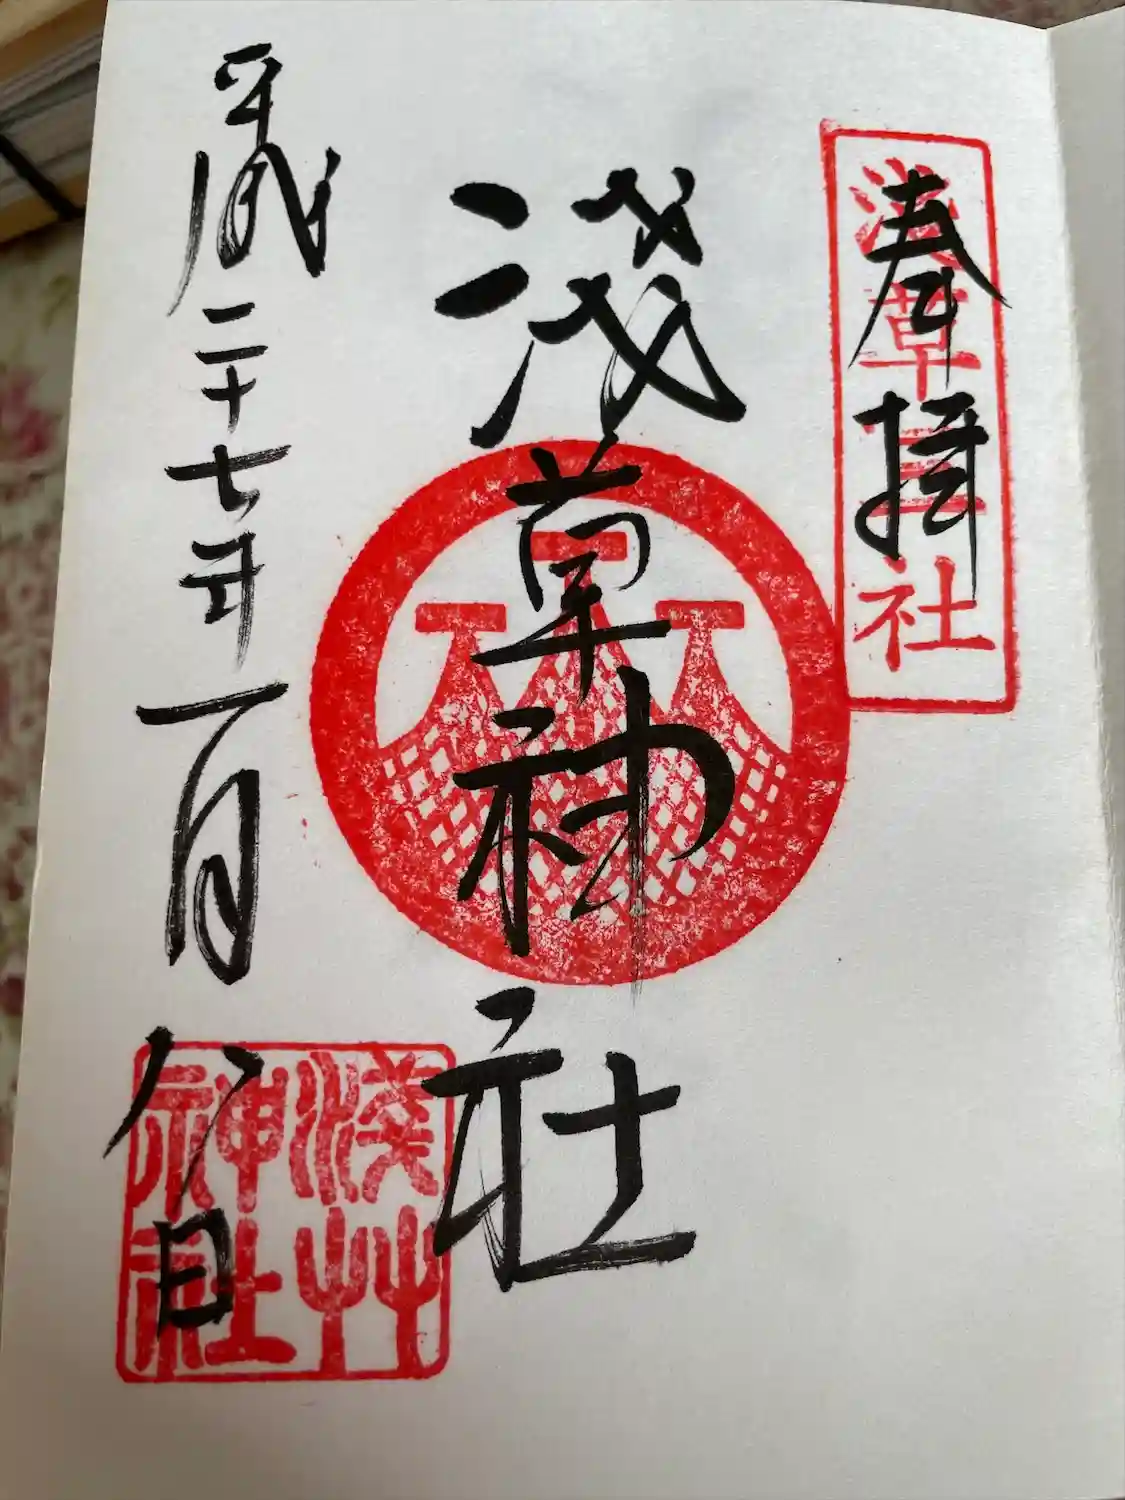 奉拝
浅草三社
淺草神社
平成二十七年一月八日
淺艸
神社